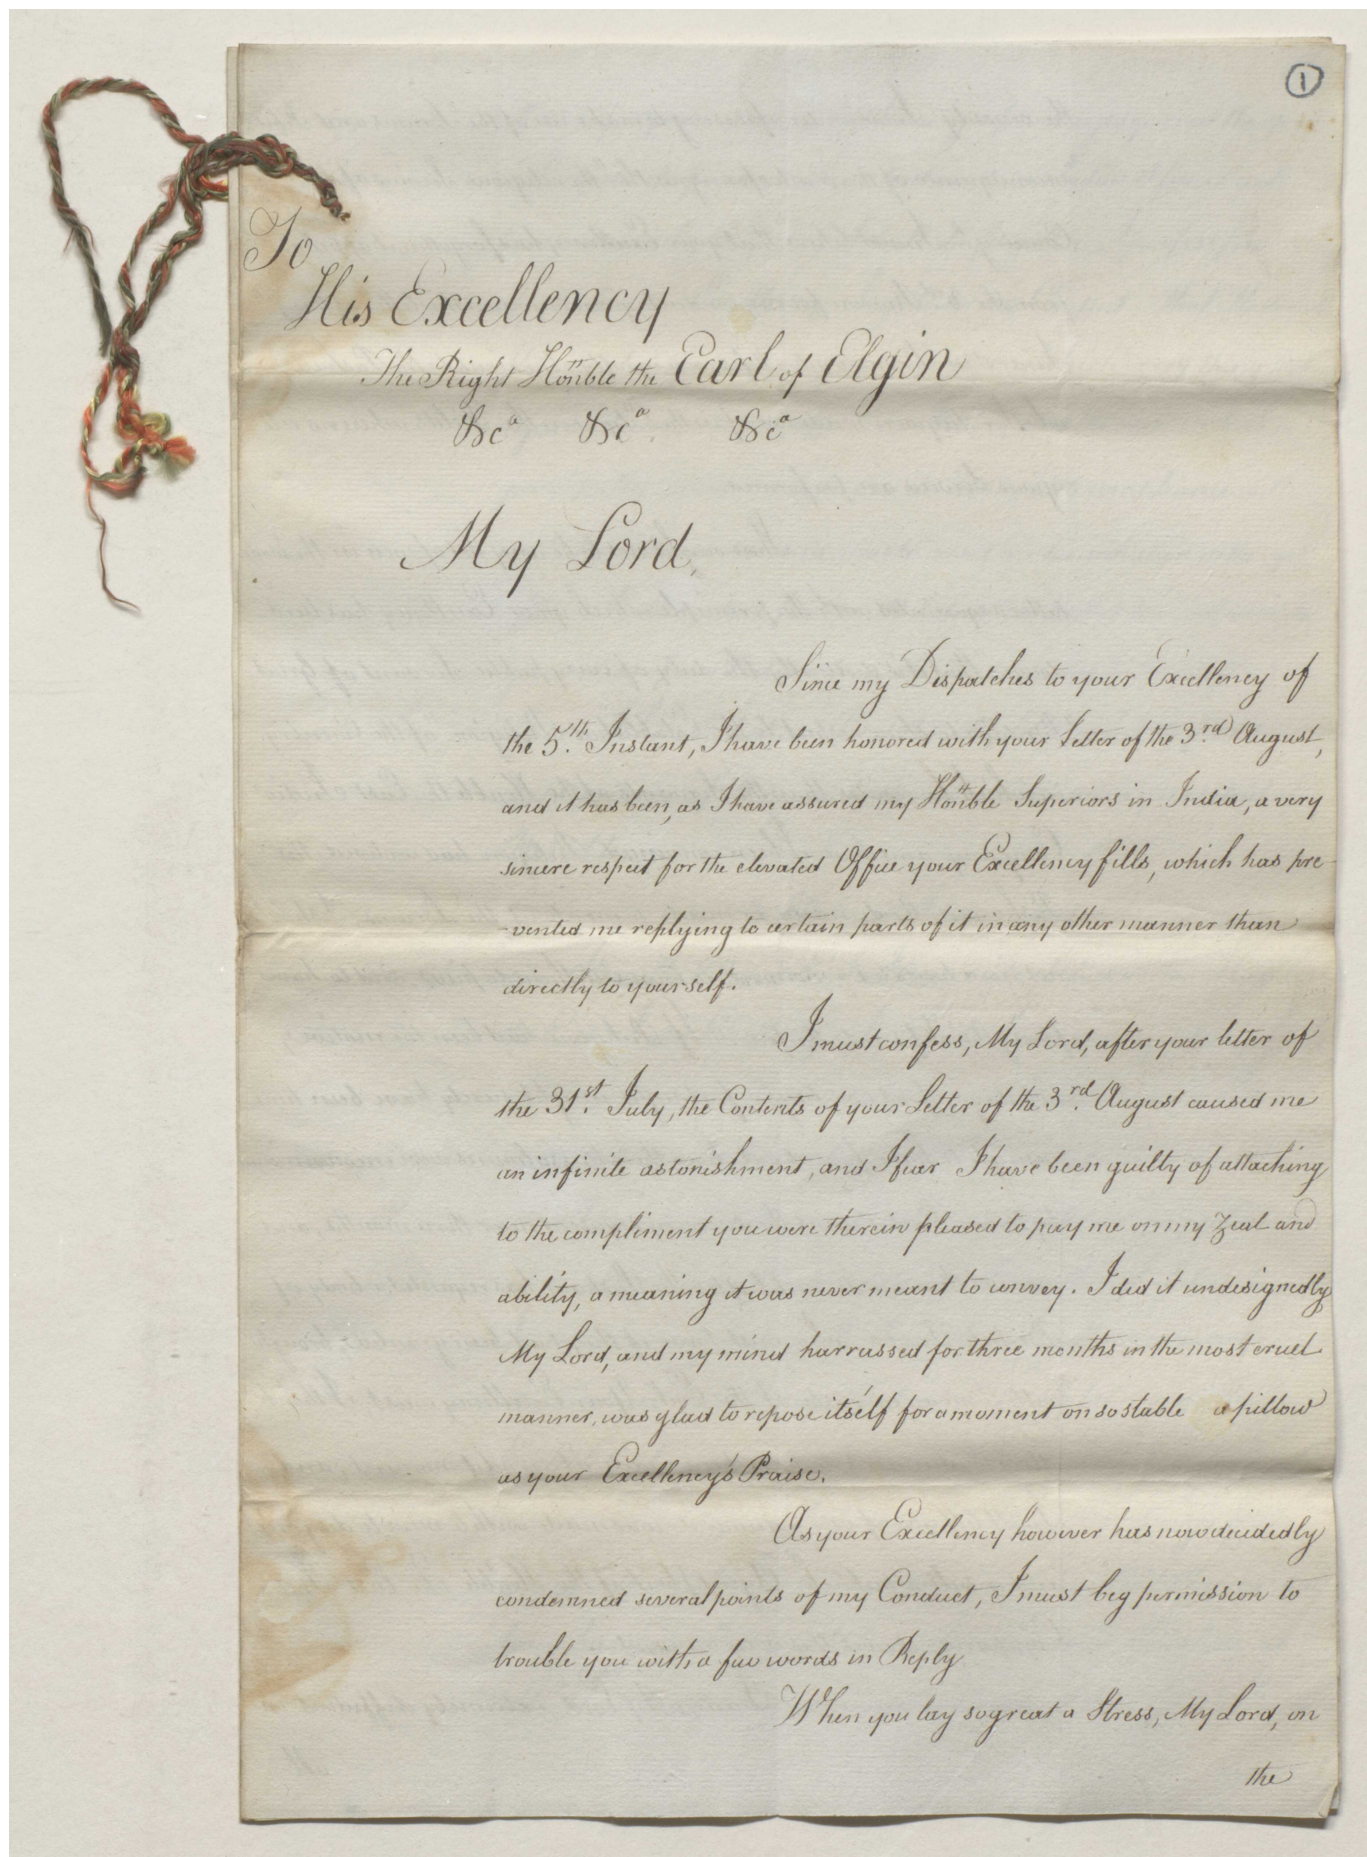 1
To
His Excellency
The Right Honble the Earl of Elgin
&ca &ca &ca
My Lord,
Since my Dispatches to your Excellency of
the 5th. Instant, I have been honored with your Letter of the 3rd. August,
and it has been, as I have assured my Honble Superiors in India, a very
sincere respect for the elevated Office your Excellency fills, which has pre-
-vented me replying to certain parts of it in any other manner than
directly to yourself.
I must confess, My Lord, after your letter of
the 31st. July, the Contents of your Letter of the 3rd. August caused me
an infinite astonishment, and I fear I have been guilty of attaching
to the compliment you were therein pleased to pay me on my Zeal and
ability, a meaning it was never meant to convey. I did it undesignedly
My Lord, and my mind harrassed for three months in the most cruel
manner, was glad to repose itself for a moment on so stable a pillow
as your Excellency's Praise.
As your Excellency however has now decidedly
condemned several points of my Conduct, I must beg permission to
trouble you with a few words in Reply
When you lay so great a Stress, My Lord, on
the